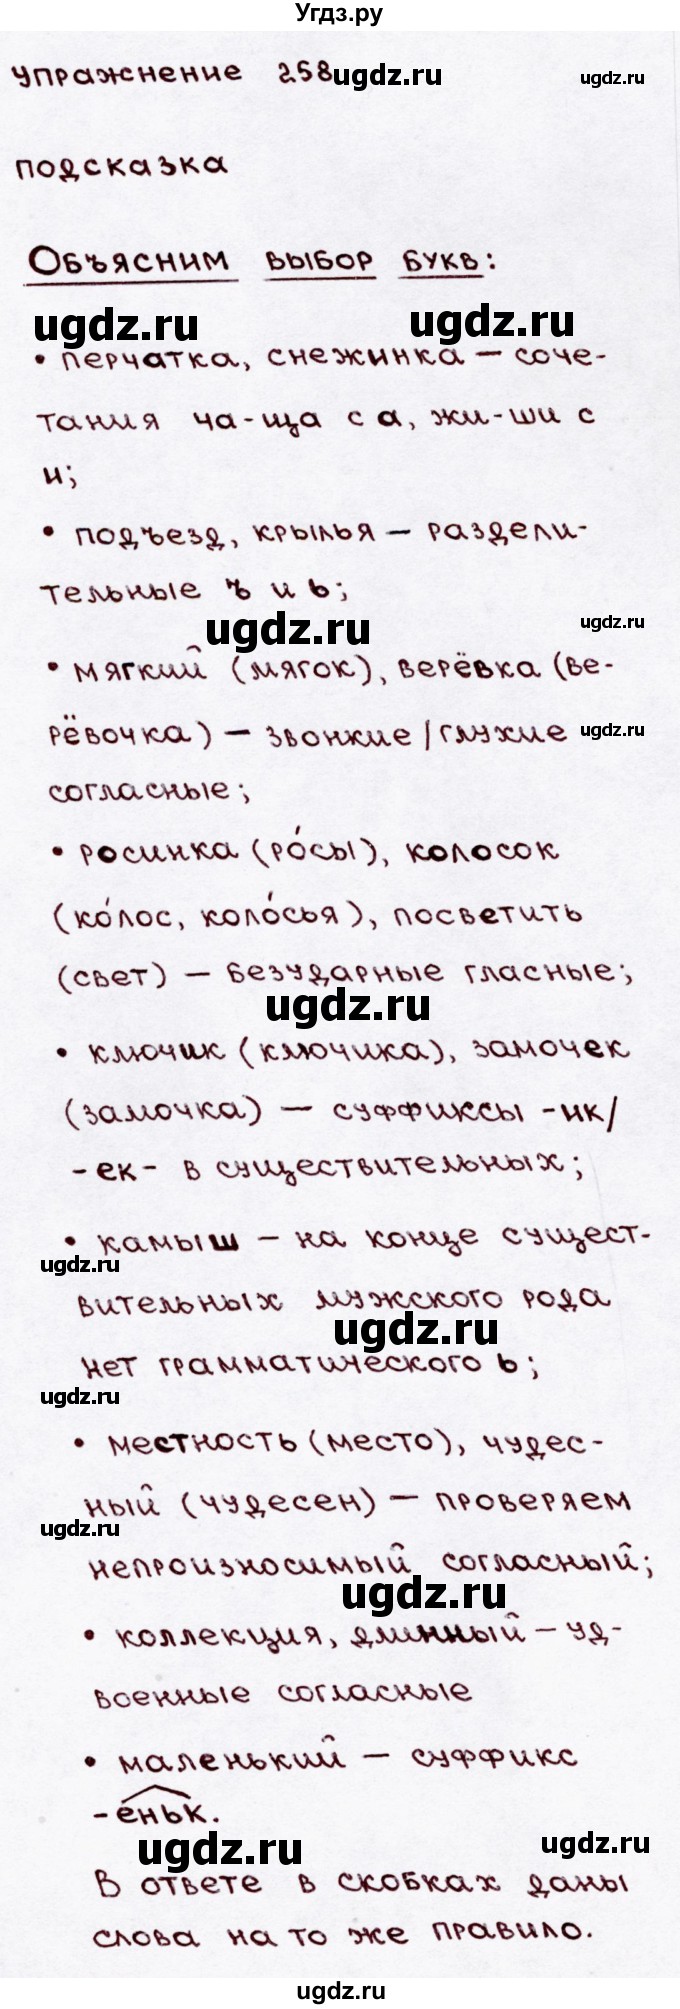 Угдз.ру
упражнение 258 ugdz.ru ugdz.ru
подсказка
Объясним выбор букв:
ugdz.ru ugdz.ru
• перчатка, снежинка – соче-
тания ча-ща с а, жи-ши с
и;
• подъезд, крылья – раздели-
тельные ъ и ь;
ugdz.ru ugdz.ru
• мягкий (мягок), верёвка (ве-
рёвочка) – звонкие/глухие ugdz.ru
согласные;
• росинка (ро́сы), колосок
(ко́лос, коло́сья), посветить
(свет) – безударные гласные;
ugdz.ru
• ключик (ключика), замочек
(замочка) – суффиксы -ик/
-ек- в существительных;
• камыш – на конце сущест-
ugdz.ru
вительных мужского рода
ugdz.ru
нет грамматического ь;
ugdz.ru
• местность (место), чудес-
ный (чудесен) – проверяем
ugdz.ru
непроизносимый согласный;
ugdz.ru
• коллекция, длинный – уд-
военные согласные
• маленький – суффикс
-еньк.
ugdz.ru ugdz.ru
В ответе в скобках даны
слова на то же правило.
ugdz.ru